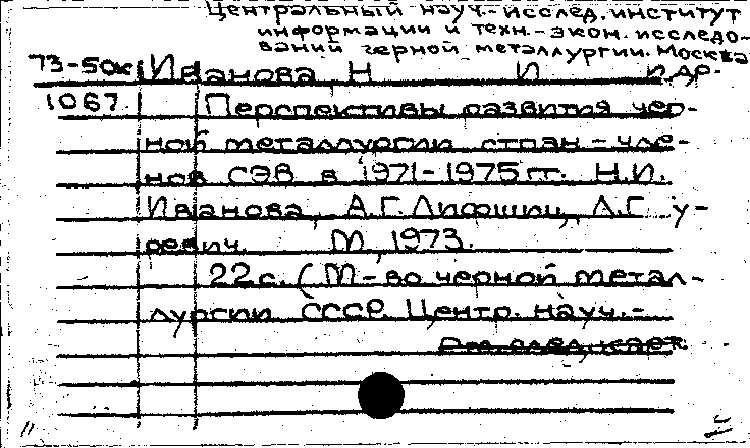 Центральный науч.-исслед. институт
информации и техн.-экон. исследо-
ваний черной металлургии. Москва
73-50к Иванова, Н. И. и др.
1067 Перспективы развития чер-
ной металлургии стран-чле-
нов СЭВ в 1971-1975 гг. Н.И.
Иванова, А.Г. Лифшиц, Л.Г. у-
ревич. М., 1973.
22 с. (М-во черной метал-
лургии СССР. Центр. науч.-